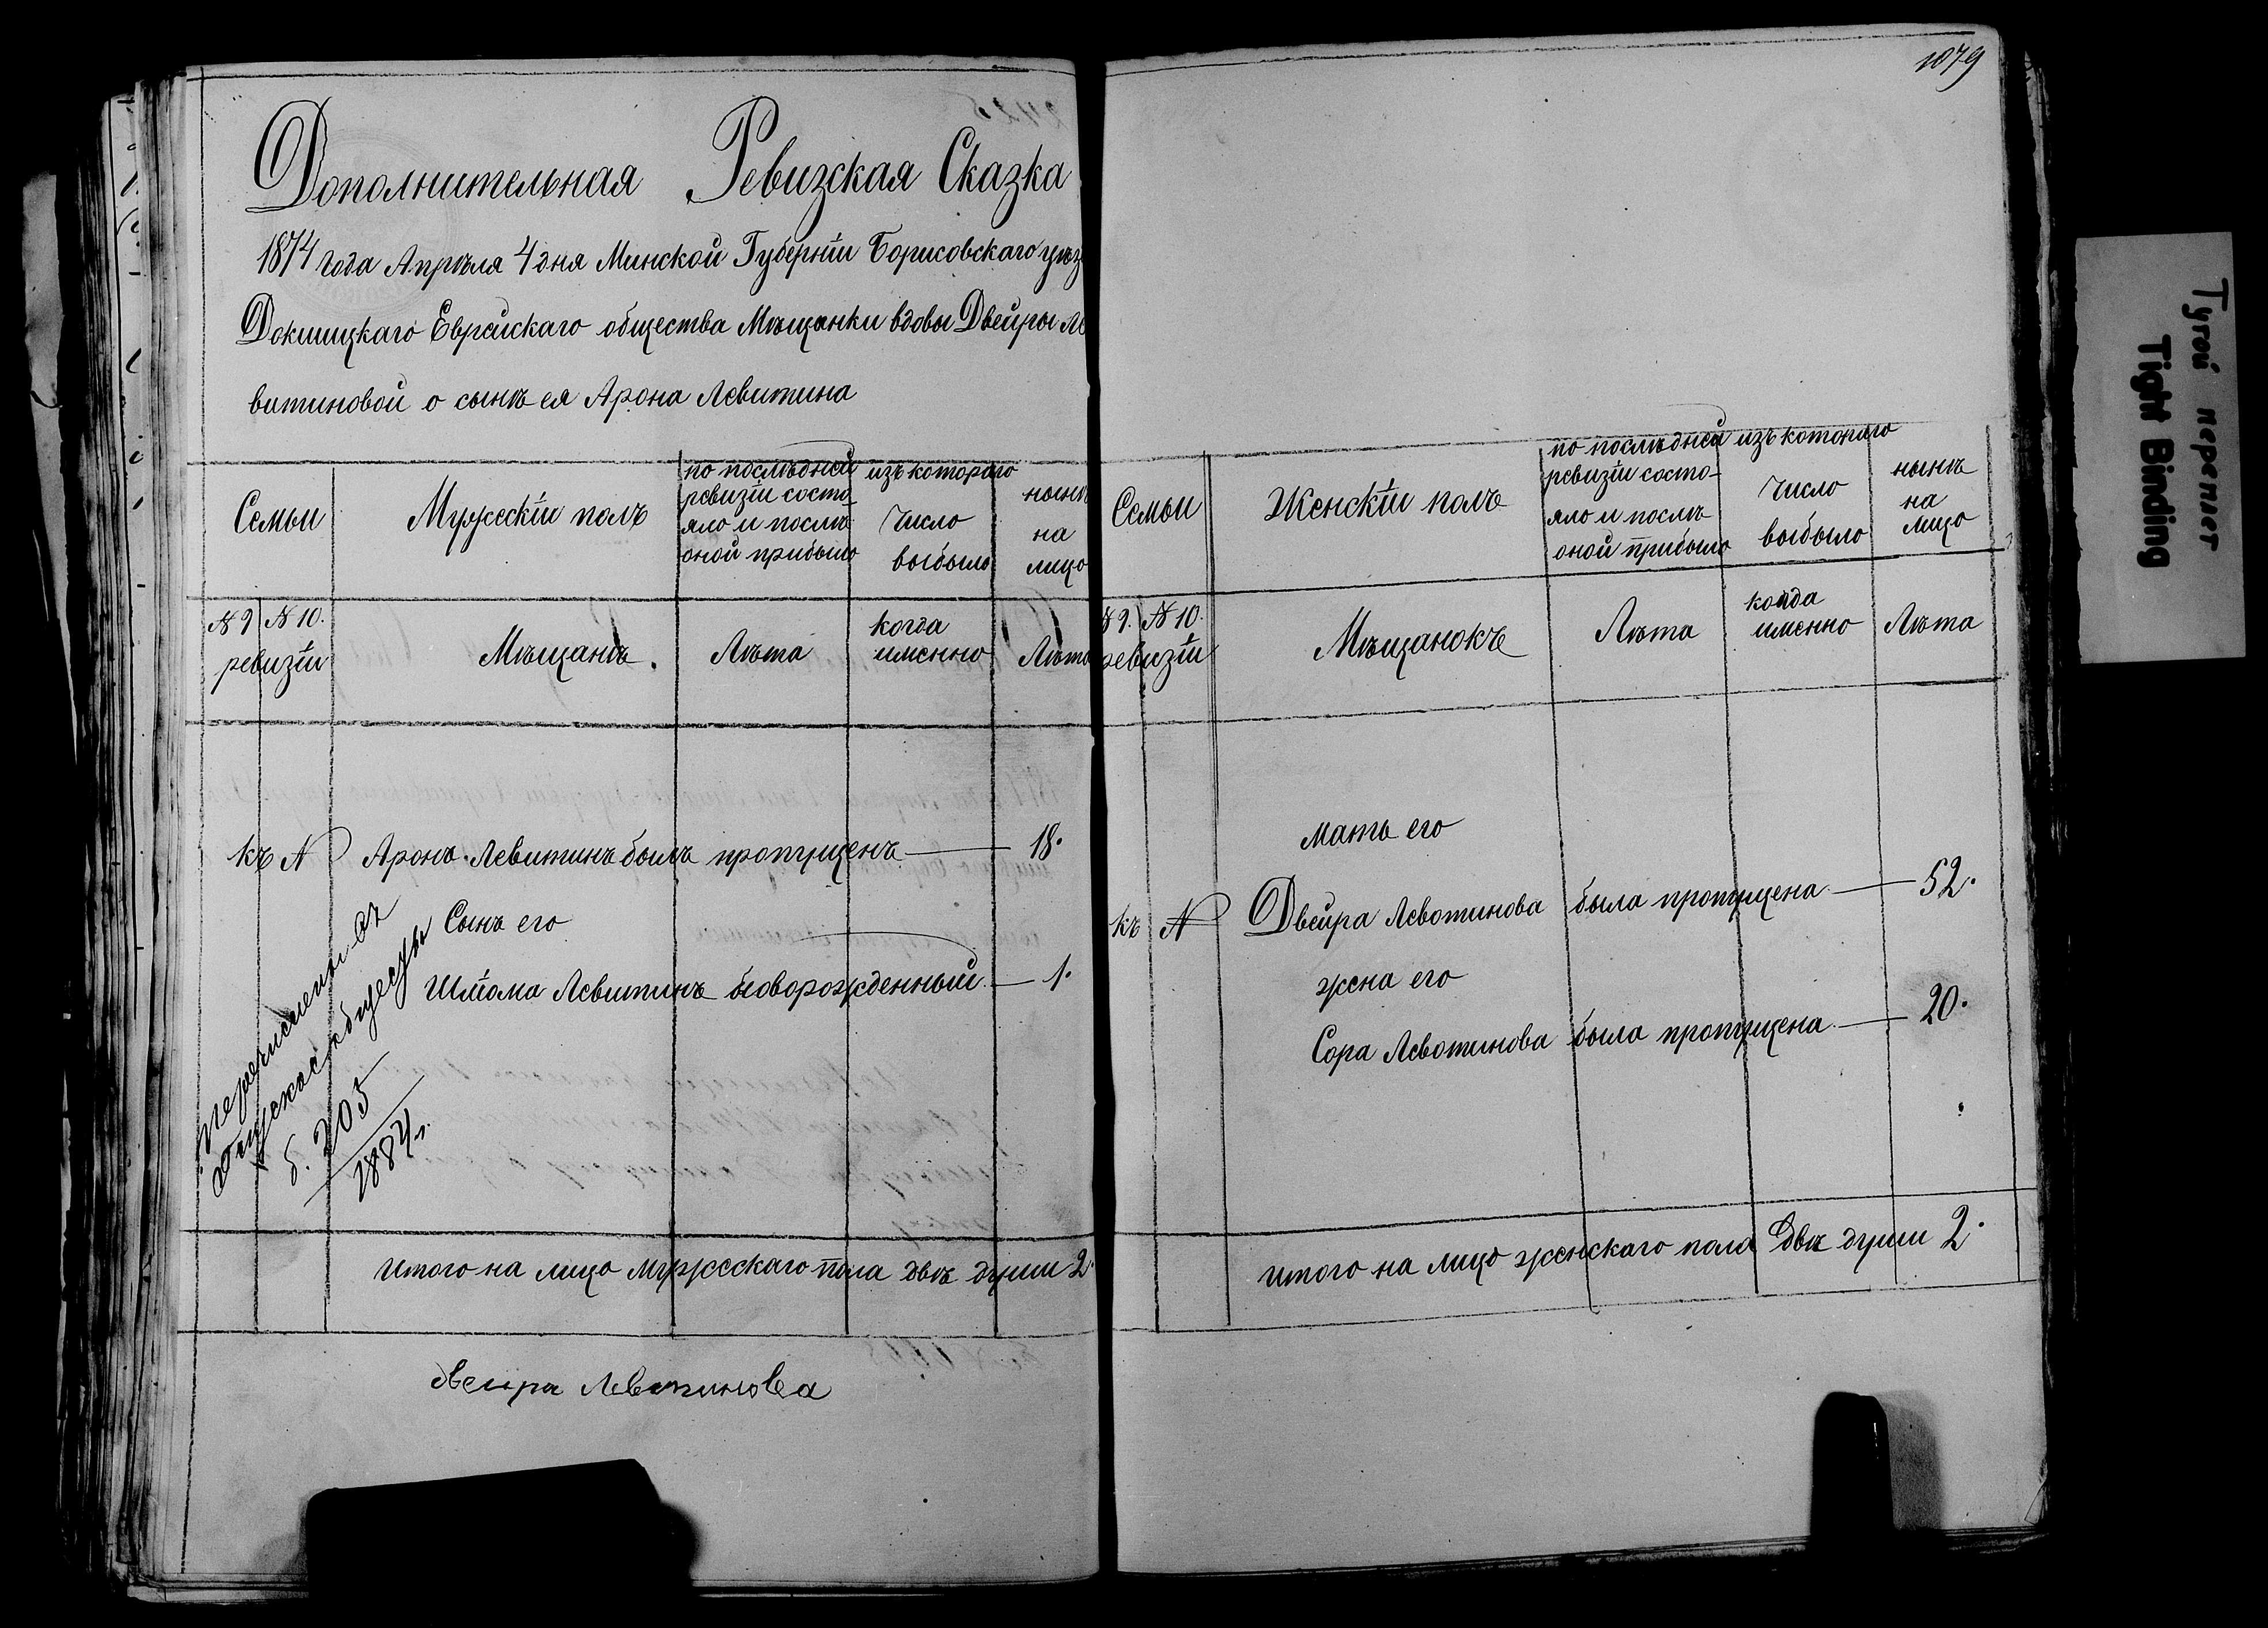 1079
Дополнительная Ревизская Сказка
1874 года Апрѣля 4 дня Минской Губерніи Борисовскаго уѣз
Докшицкаго Еврейскаго общества Мѣщанки вдовы Двейры Ле
витиновой о сынѣ ея Арона Левитина
Семьи
Мужескій полъ
по послѣдней
ревизіи состо-
яло и послѣ
оной прибыло
изъ котораго
число
выбыло
нынѣ
на
лицо
№ 9 № 10.
ревизіи
Мѣщанъ.
Лѣта
когда
именно
Лѣта
къ №
Аронъ Левитинъ былъ пропущенъ — 18.
Сынъ его
Шлома Левитинъ новорожденный — 1.
перечислены съ
б. 205
1884 г.
итого на лицо мужескаго пола двѣ души 2.
двейра Левотинова
Семьи
Женскій полъ
по послѣдней
ревизіи состо-
яло и послѣ
оной прибыло
изъ котораго
число
выбыло
нынѣ
на
лицо
№ 9. № 10.
ревизіи
Мѣщанокъ
Лѣта
когда
именно
Лѣта
мать его
къ № Двейра Левотинова была пропущена — 52.
жена его
Сора Левотинова была пропущена — 20.
итого на лицо женскаго пола двѣ души 2.
Тугой переплет
Tight Binding